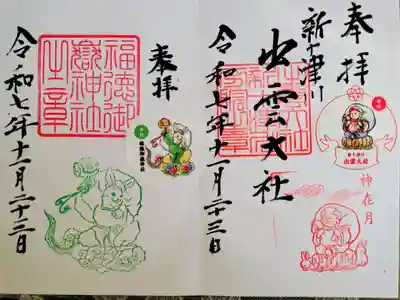 奉拝
新十津川
出雲大社
令和七年十一月二十三日
新十津川
出雲大社
神在月
奉拝
福徳御
嶽神社
之章
令和七年十一月二十三日